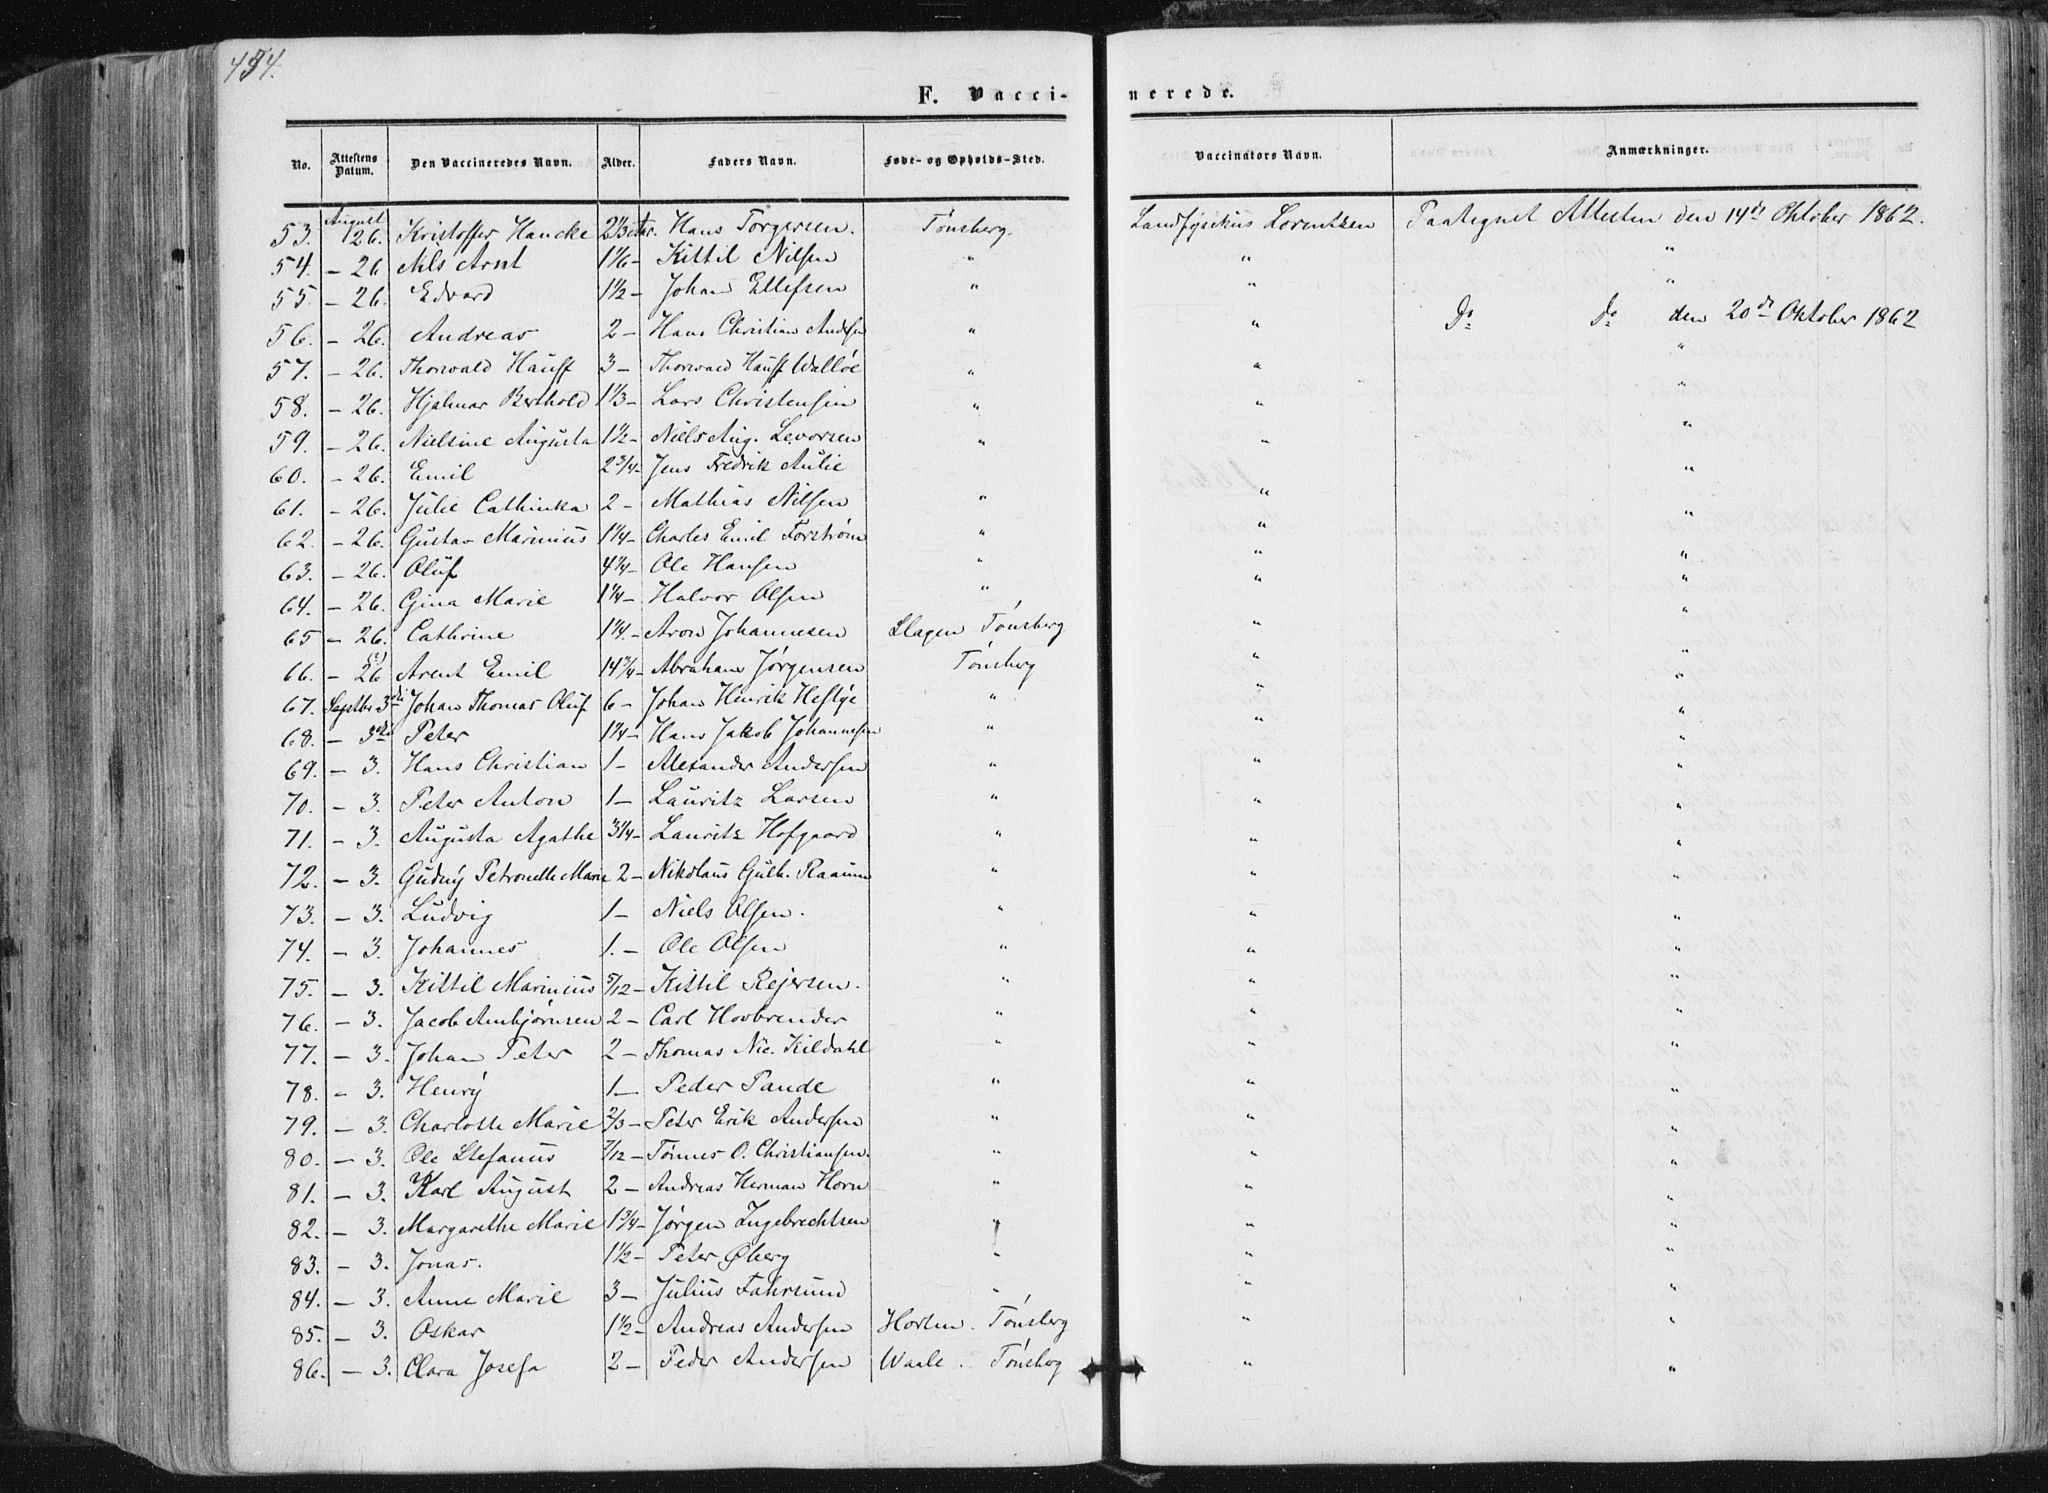 454.
F. Vaccinerede.
No. Attestens Datum. Den Vaccineredes Navn. Alder. Faders Navn. Føde- og Opholds-Sted. Vaccinators Navn. Anmærkninger.
53. August 26. Kristoffer Hancke 2 1/3 Hans Torgersen. Tønsberg. Landfysikus Lorentzen Paategnet Attesten den 14de Oktober 1862.
54. - 26 Nils Arnt 1 1/6 - Kittil Nilsen " " "
55. - 26. Edvard 1 1/2 - Johan Ellefsen " " "
56. - 26. Andreas 2 - Hans Christian Andersen " " Do Do den 20de Oktober 1862
57. - 26. Thorvald Hauff 3 - Thorvald Hauff Walløe " " "
58. - 26. Hjalmar Berthold 1 1/3 - Lars Christensen " " "
59. - 26. Nielsine Augusta 1 1/2 - Niels Aug. Levorsen " " "
60. - 26. Emil 2 3/4 - Jens Fredrik Aulie "
61. - 26. Julie Cathinka 2 - Mathias Nilsen " " "
62. - 26. Gustav Marinius 1 1/4 - Charles Emil Forstrøm " " "
63. - 26. Oluf 4 1/4 - Ole Hansen " " "
64. - 26. Gina Marie 1 1/4 - Halvor Olsen " " "
65 - 26. Cathrine 1 1/4. - Aron Johannesen Slagen Tønsberg " "
66. - 26 Arent Emil 14 3/4 - Abraham Jørgensen Tønsberg " "
67. Septbr 3die Johan Thomas Oluf 6 - Johan Henrik Heftye " " "
68. - 3die Peter 1 1/4 - Hans Jakob Johannesen " " "
69. - 3. Hans Christian 1 - Alexander Andersen " " "
70. - 3. Peter Anton 1 - Lauritz Larsen " " "
71. - 3. Augusta Agathe 3/4 - Lauritz Hofgaard " " "
72. - 3. Gudny Petronelle Marie 2 - Nikolaus Gulb. Raaum " " "
73. - 3. Ludvig 1 - Niels Olsen. " " "
74. - 3. Johannes 1. - Ole Olsen " " "
75. - 3. Kittil Marinius 5/12 - Kittil Rejersen. " " "
76. - 3. Jacob Ambjørnsen 2 - Carl Hovbrender " " "
77. - 3. Johan Peter 2 - Thomas Nic. Kildahl " " "
78. - 3. Henry 1 - Peder Pande " " "
79. - 3. Charlotte Marie 2/3 - Peter Erik Andersen " " "
80. - 3. Ole Stefanus 7/12 - Tønnes O. Christiansen. " " "
81. - 3. Karl August 2 - Andreas Herman Horn " " "
82. - 3. Margarethe Marie 1 3/4 - Jørgen Ingebrechtsen " " "
83. - 3. Jonas. 1 1/2 - Peter Øberg " " "
84. - 3. Anne Marie 3 - Julius Fahrsund " " "
85. - 3. Oskar 1 1/2 - Andreas Andersen Horten. Tønsberg " "
86. - 3. Clara Josefa 2 - Peder Andersen Waale. Tønsberg " "